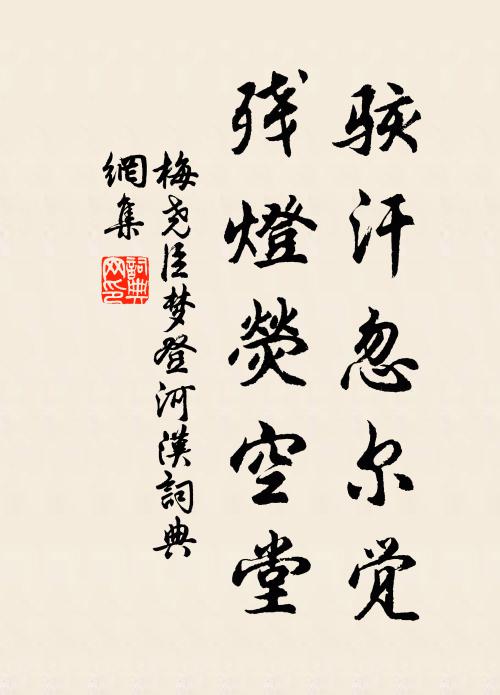 骇汗忽尔觉
残燈熒空堂
梅尧臣梦登河漢詞典
網集
詞典
网印